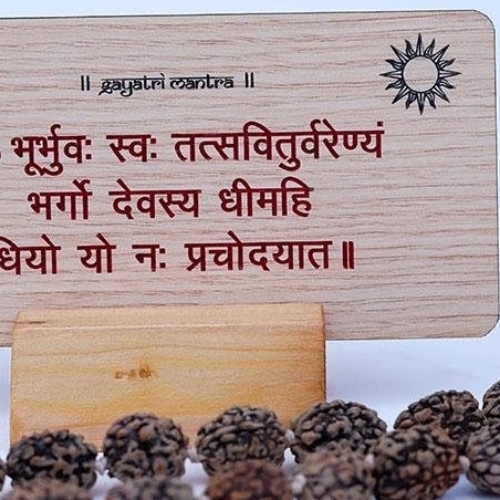 ॥ gayatri mantra ॥
भूर्भुवः स्वः तत्सवितुर्वरेण्यं
भर्गो देवस्य धीमहि
धियो यो नः प्रचोदयात॥